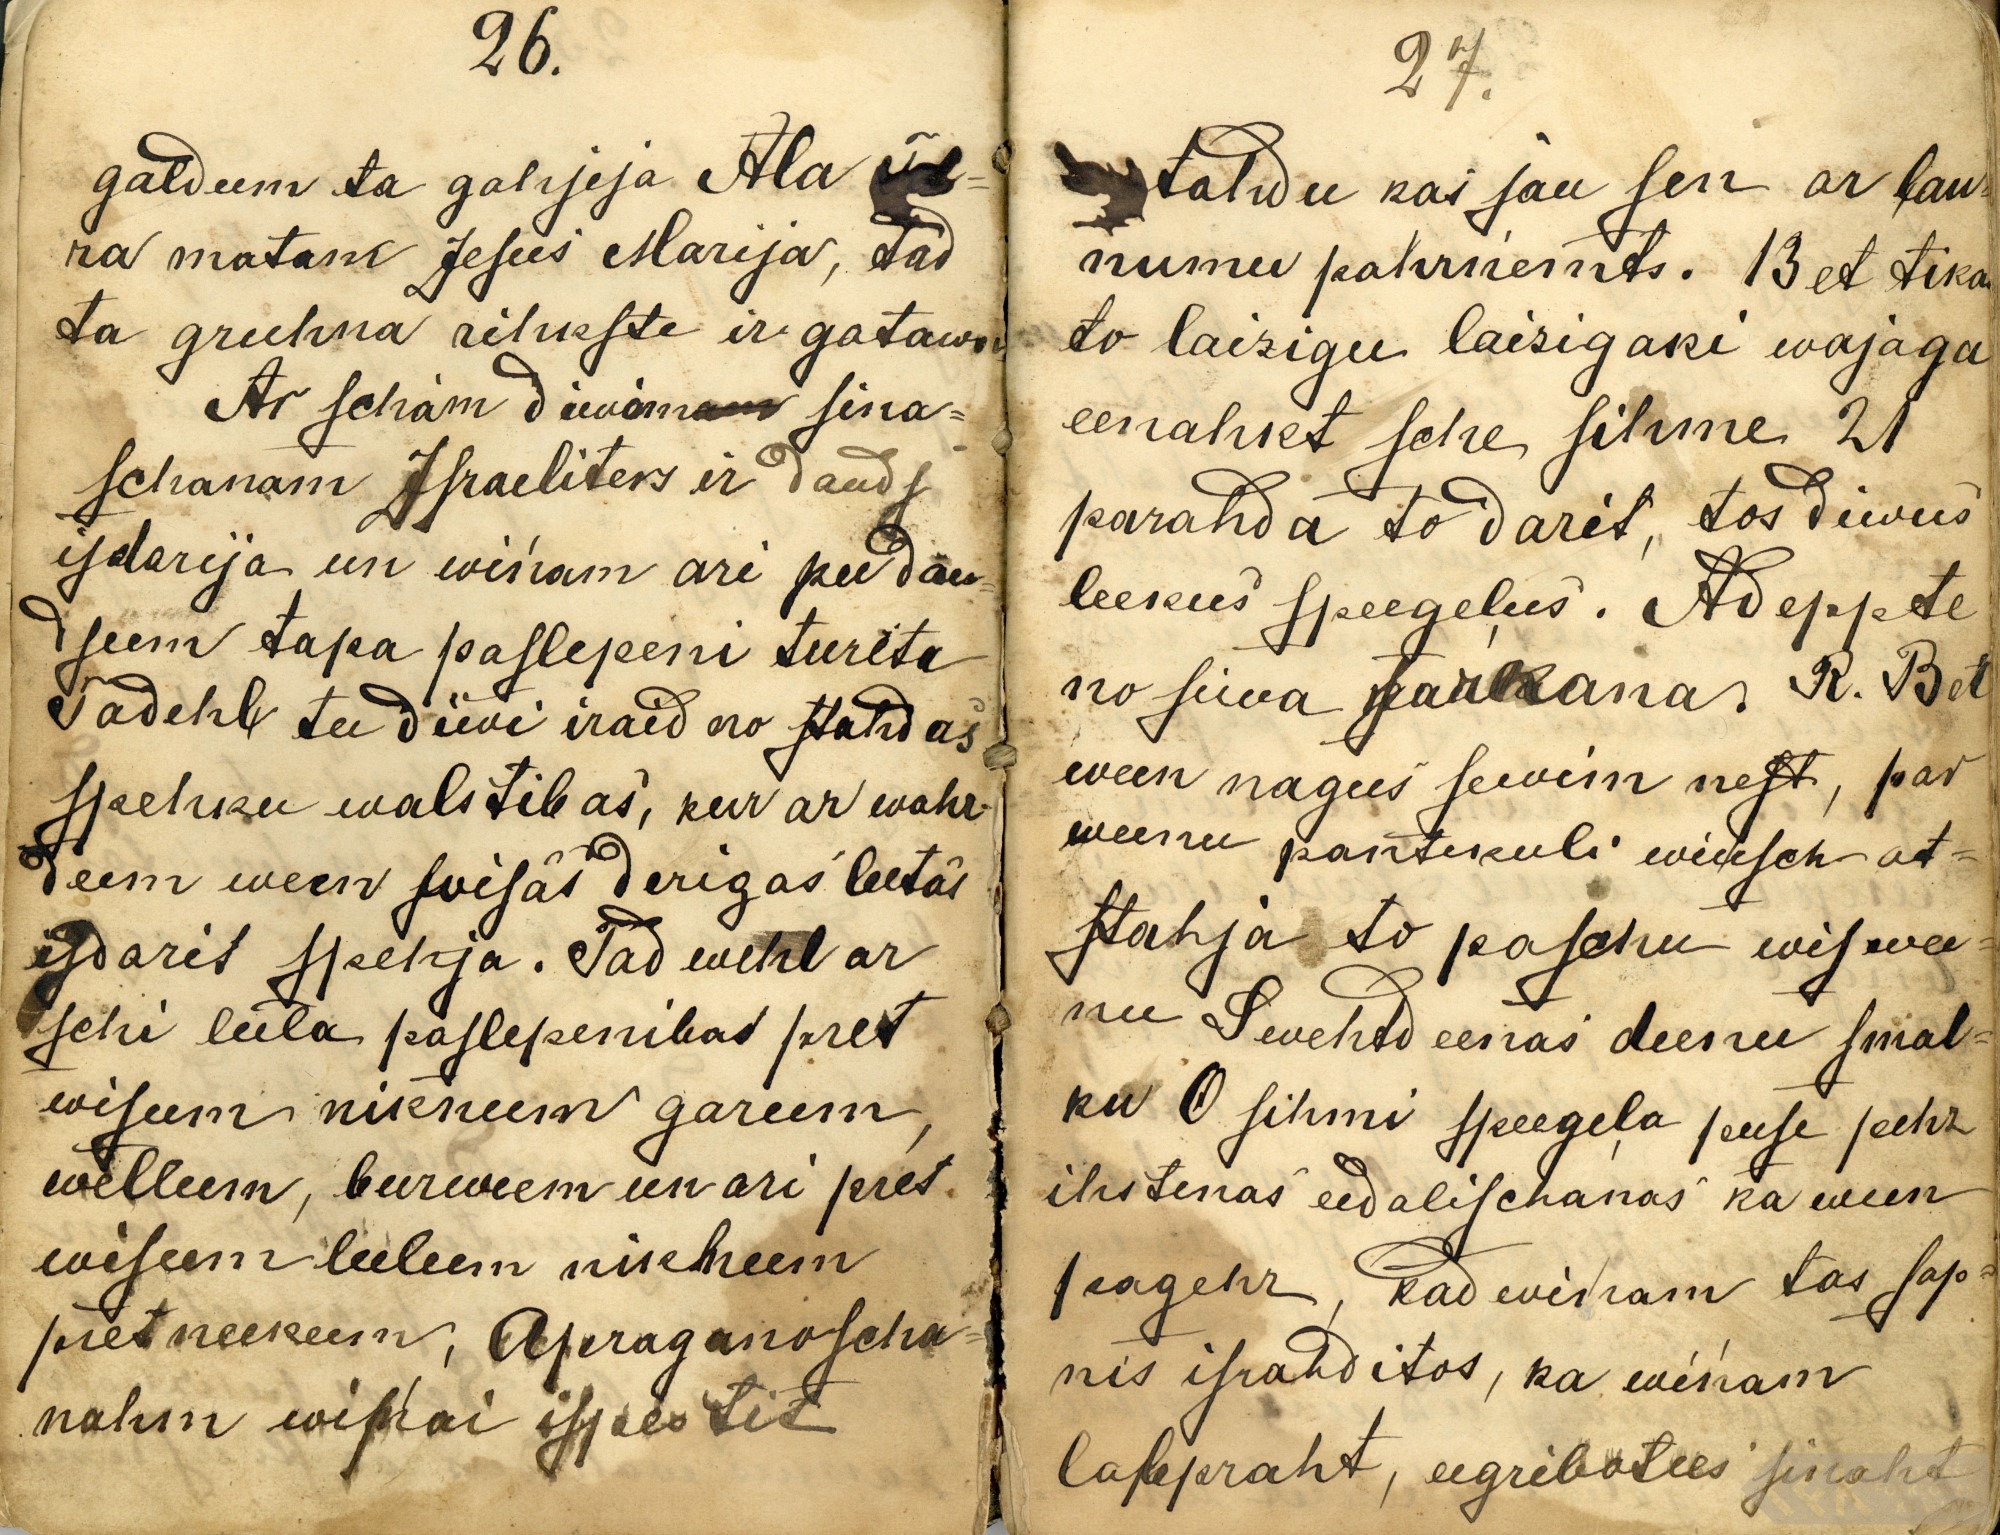 26.
galdeem ta gahjeja Ala
na matam Jesus Marija, tad
ta gruhna rihkste ir gatawa
Ar scham diwam sina=
schanam Israeliters ir daudſ
iſdarija un wiņam ari pee dau=
dſeem tapa paſlepeni tureta
Tadehļ tee diwi iraid no ſtahdas
ſpehku walstibas, kur ar wahr=
deem ween ſwisās derigas leetas
iſdarit ſpehja. Tad wehl ar
ſchi leela paſlepenibas pret
wiſeem nikneem gareem,
welleem, burweem un ari pret
wiſeem leeleem nikneem
pretneekeem, Apraganoscha=
nahm wiņai iſpestit
27.
tahdu kas jau ſen ar lau=
numu pahrņemts. Bet tikai
to laizigu laizigaki wajaga
eenahkt sche ſihme 21
parahda to darit, tos diwus
leekus ſpeegeļus. Adeppte
no ſuwa ſarkana. R. Bet
ween nagus ſewim neſt, par
weenu pantukuli wiņsch at=
ſtahja to paſchu wiſwee=
nu Swehtdeenas deenu ſmal=
ku O ſihmi ſpeegeļa puſe pehz
ihstenas eedaliſchanas ka ween
pagehr, kad wiņam tas ſap=
nis iſrahditos, ka wiņam
laſepraht, eegribotees ſinaht